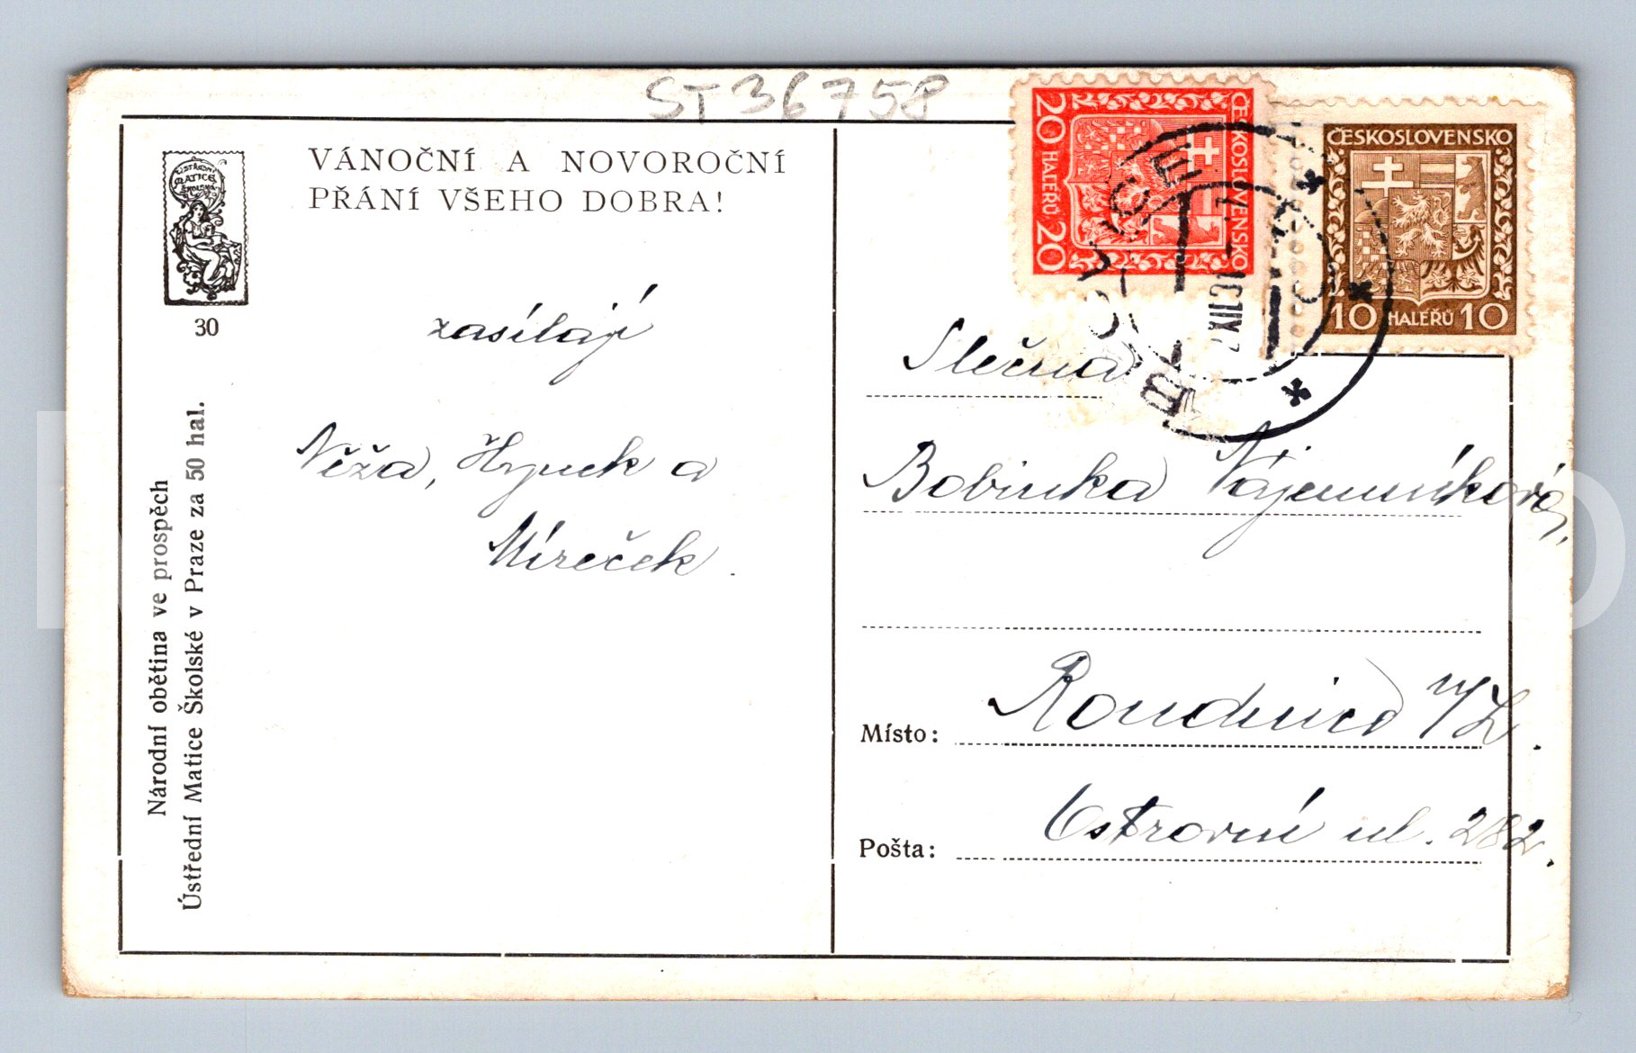 ST36758
VÁNOČNÍ A NOVOROČNÍ
PŘÁNÍ VŠEHO DOBRA!
ÚSTŘEDNÍ
MATICE
ŠKOLSKÁ
30
zasílají
Něža, Hynek a
Míreček.
Národní obětina ve prospěch
Ústřední Matice Školské v Praze za 50 hal.
ČESKOSLOVENSKO
20 HALÉŘŮ 20
ČESKOSLOVENSKO
10 HALÉŘŮ 10
Slečna
Bobinka Nájemníková,
Místo: Roudnice n/L.
Pošta: Ostrovní ul. 282.